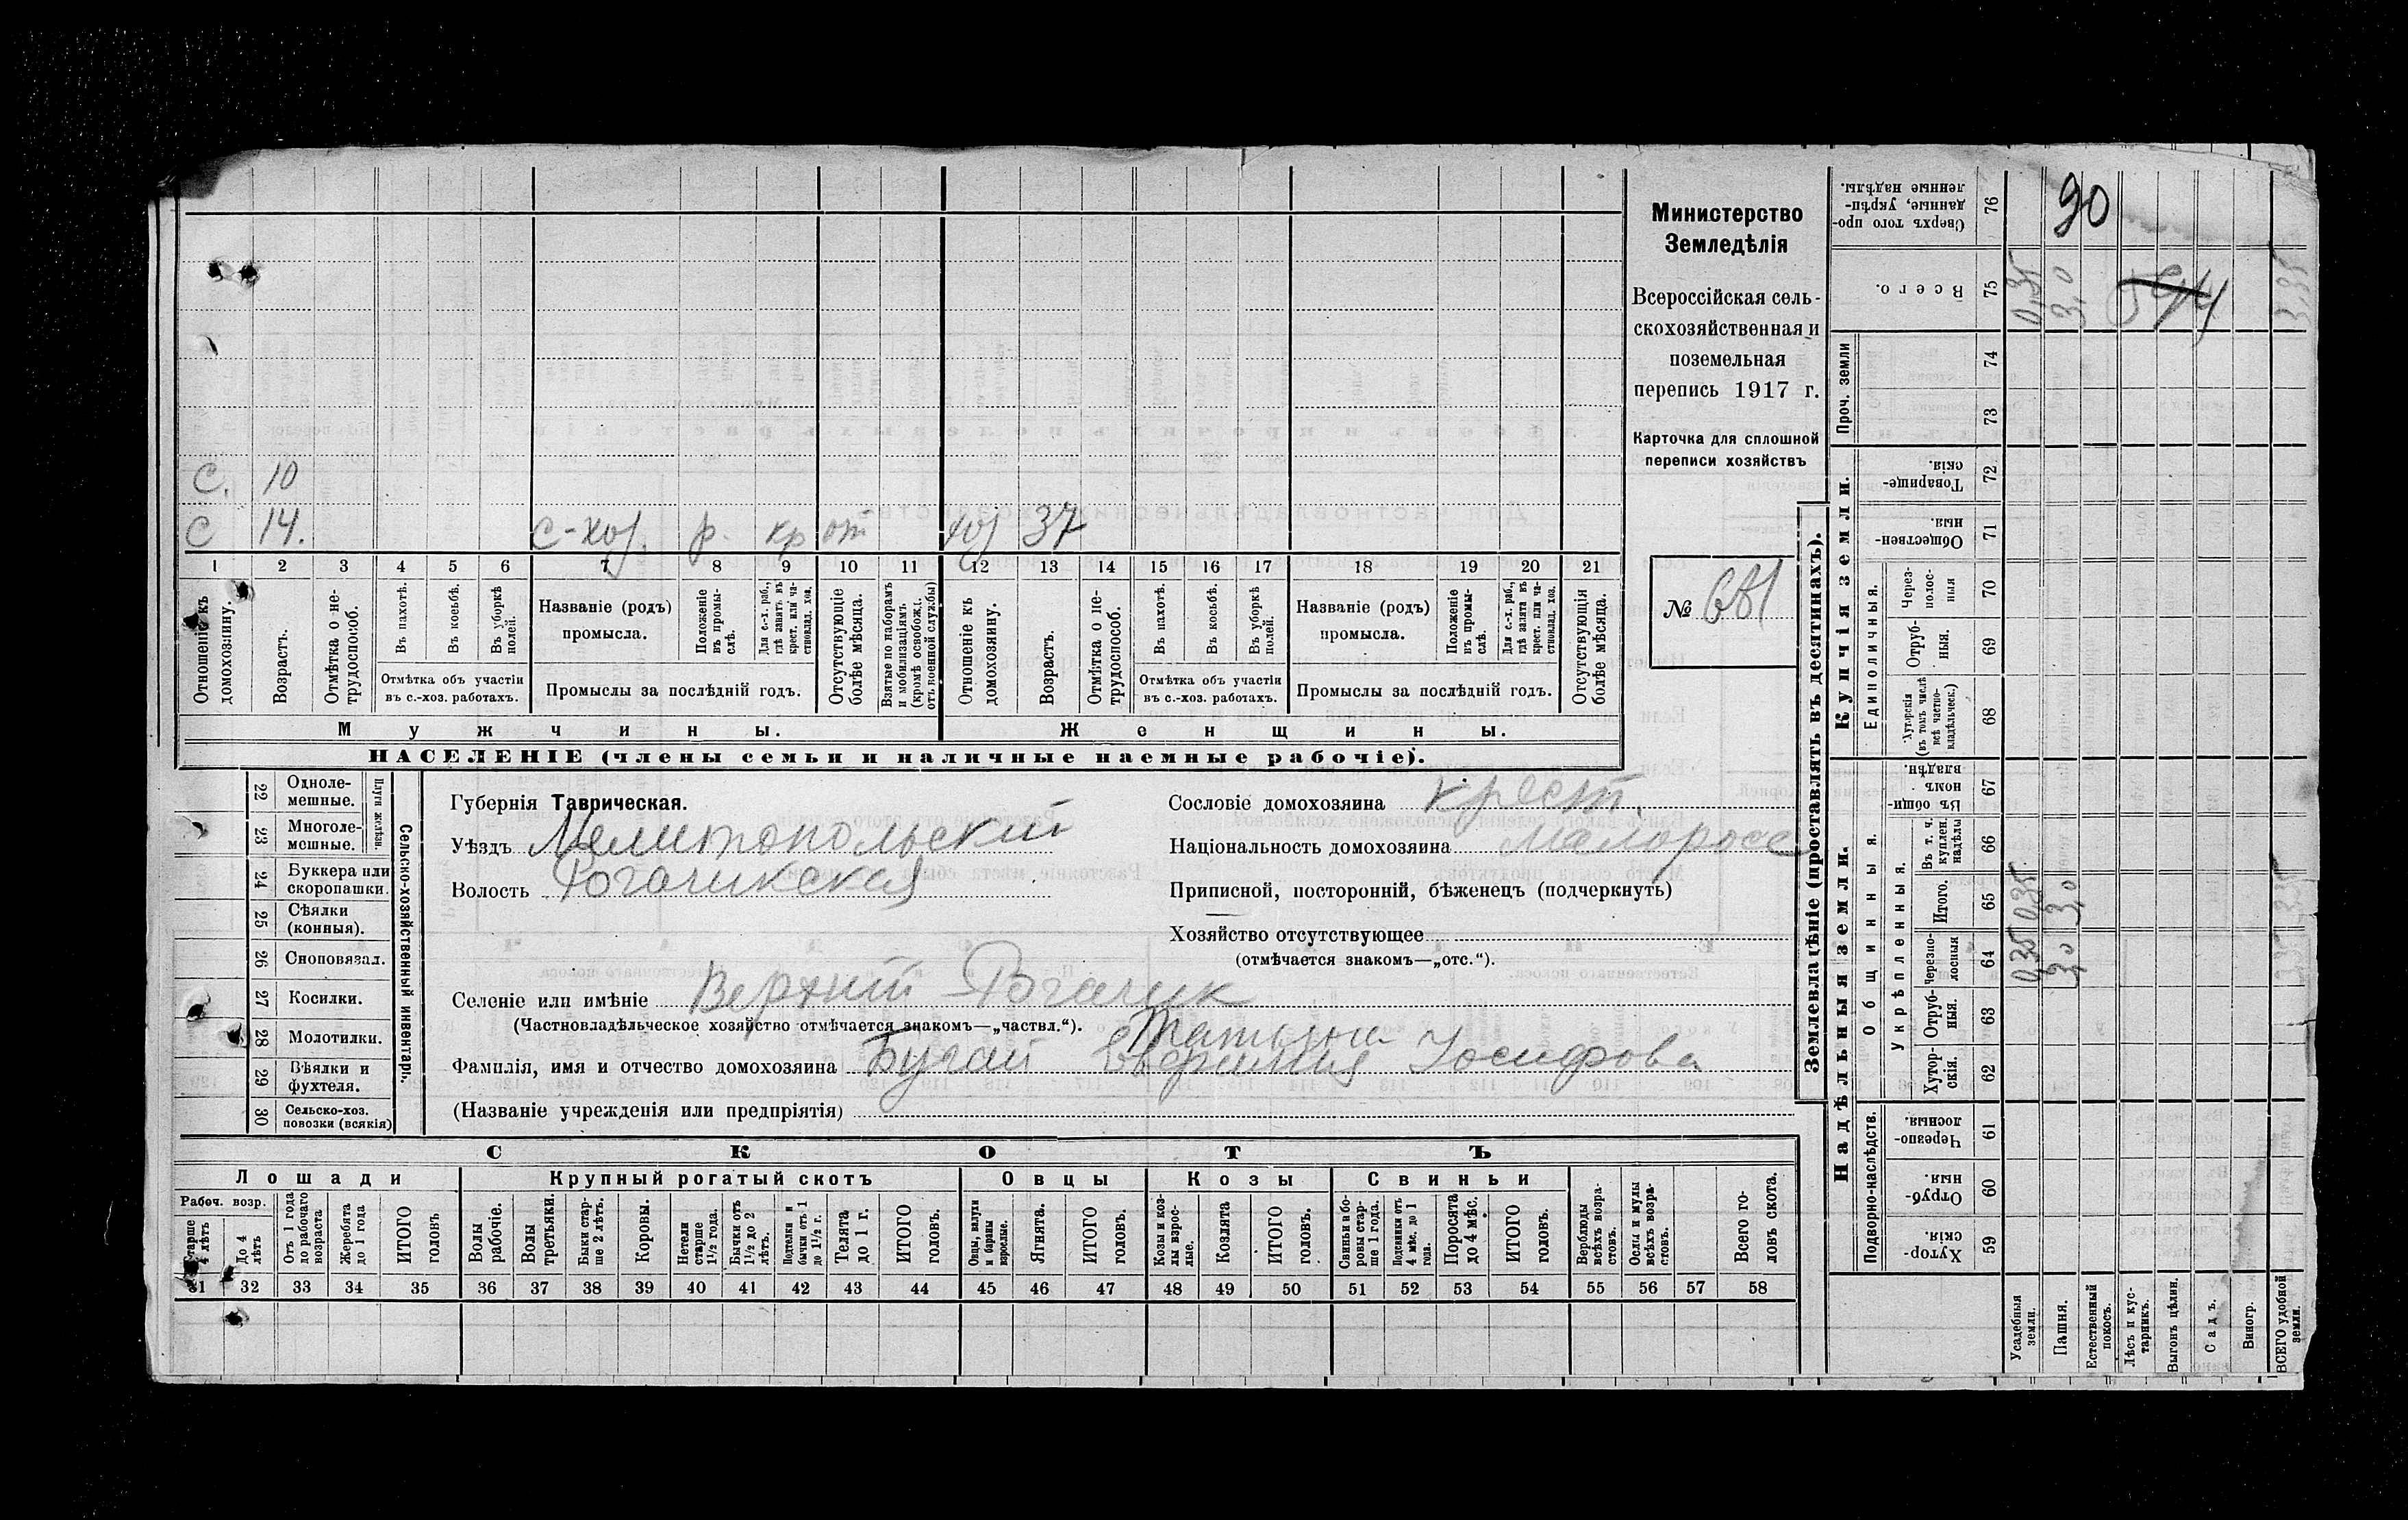 С. 10
С 14. с-хоз. р. кр от хоз 37
1 2 3 4 5 6 7 8 9 10 11 12 13 14 15 16 17 18 19 20 21
Отношеніе къ домохозяину.
Возрастъ.
Отмѣтка о не-трудоспособ.
Въ пахотѣ.
Въ косьбѣ.
Въ уборкѣ полей.
Отмѣтка объ участіи въ с.-хоз. работахъ.
Названіе (родъ) промысла.
Положеніе въ промы-слѣ.
Для с.-х. раб., гдѣ занятъ въ крест. или ча-стновлад. хоз.
Промыслы за послѣдній годъ.
Отсутствующіе болѣе мѣсяца.
Взятые по наборамъ и мобилизаціямъ (кромѣ освобожд. отъ военной службы)
Отношеніе къ домохозяину.
Возрастъ.
Отмѣтка о не-трудоспособ.
Въ пахотѣ.
Въ косьбѣ.
Въ уборкѣ полей.
Отмѣтка объ участіи въ с.-хоз. работахъ.
Названіе (родъ) промысла.
Положеніе въ промы-слѣ.
Для с.-х. раб., гдѣ занята въ крест. или ча-стновлад. хоз.
Промыслы за послѣдній годъ.
Отсутствующія болѣе мѣсяца.
Мужчины. Женщины.
НАСЕЛЕНІЕ (члены семьи и наличные наемные рабочіе).
Министерство
Земледѣлія
Всероссійская сель-
скохозяйственная и
поземельная
перепись 1917 г.
Карточка для сплошной
переписи хозяйствъ
№
22 Одноле-мешные.
23 Многоле-мешные.
Плуги желѣзн.
24 Буккера или скоропашки.
25 Сѣялки (конныя).
26 Сноповязал.
27 Косилки.
28 Молотилки.
29 Вѣялки и фухтеля.
30 Сельско-хоз. повозки (всякія)
Сельско-хозяйственный инвентарь.
Губернія Таврическая.
Уѣздъ Мелитопольский
Волость Рогачикская
Сословіе домохозяина крест.
Національность домохозяина малоросс
Приписной, посторонній, бѣженецъ (подчеркнуть)
Хозяйство отсутствующее
(отмѣчается знакомъ—„отс.“).
Селеніе или имѣніе Верхний Рогачик
(Частновладѣльческое хозяйство отмѣчается знакомъ—„частвл.“).
Татьяна
Фамилія, имя и отчество домохозяина Бугай Иосифова
(Названіе учрежденія или предпріятія)
СКОТЪ
Лошади Крупный рогатый скотъ Овцы Козы Свиньи
Рабоч. возр.
Старше 4 лѣтъ
До 4 лѣтъ
Отъ 1 года до рабочаго возраста
Жеребята до 1 года
ИТОГО головъ
Волы рабочіе.
Волы третьяки.
Быки стар-ше 2 лѣтъ.
Коровы.
Нетели старше 1½ года.
Бычки отъ 1½ до 2 лѣтъ.
Подтелки и бычки отъ 1 до 1½ г.
Телята до 1 г.
ИТОГО головъ.
Овцы, валухи и бараны взрослые.
Ягнята.
ИТОГО головъ.
Козы и коз-лы взрос-лые.
Козлята
ИТОГО головъ.
Свиньи и бо-ровы стар-ше 1 года.
Подсвинки отъ 4 мѣс. до 1 года.
Поросята до 4 мѣс.
ИТОГО головъ.
Верблюды всѣхъ возра-стовъ.
Ослы и мулы всѣхъ возра-стовъ.
Всего го-ловъ скота.
31 32 33 34 35 36 37 38 39 40 41 42 43 44 45 46 47 48 49 50 51 52 53 54 55 56 57 58
Землевладѣніе (проставлять въ десятинахъ).
Надѣльныя земли. Купчія земли. Проч. земли
Подворно-наслѣдств. Общинныя. Единоличныя.
Укрѣпленныя.
Хутор-скія. 59
Отруб-ныя. 60
Черезпо-лосныя. 61
Хутор-скія. 62
Отруб-ныя. 63
Черезпо-лосныя 64 0,35 3,0
Итого. 65 0,35 3,0
Въ т. ч. куплен. надѣлы 66
Въ общи-номъ владѣн. 67
Хуторскія (въ томъ числѣ всѣ частно-владѣльческ.) 68
Отруб-ныя. 69
Через-полос-ныя 70
Обществен-ныя. 71
Товарище-скія. 72
73
74
Всего. 75 0,35 3,0 3,35
Сверхъ того про-данные, укрѣп-ленные надѣлы. 76
90
Усадебныя земли.
Пашня.
Естественный покосъ.
Лѣсъ и кус-тарникъ.
Выгонъ цѣлин.
Садъ.
Виногр.
ВСЕГО удобной земли.